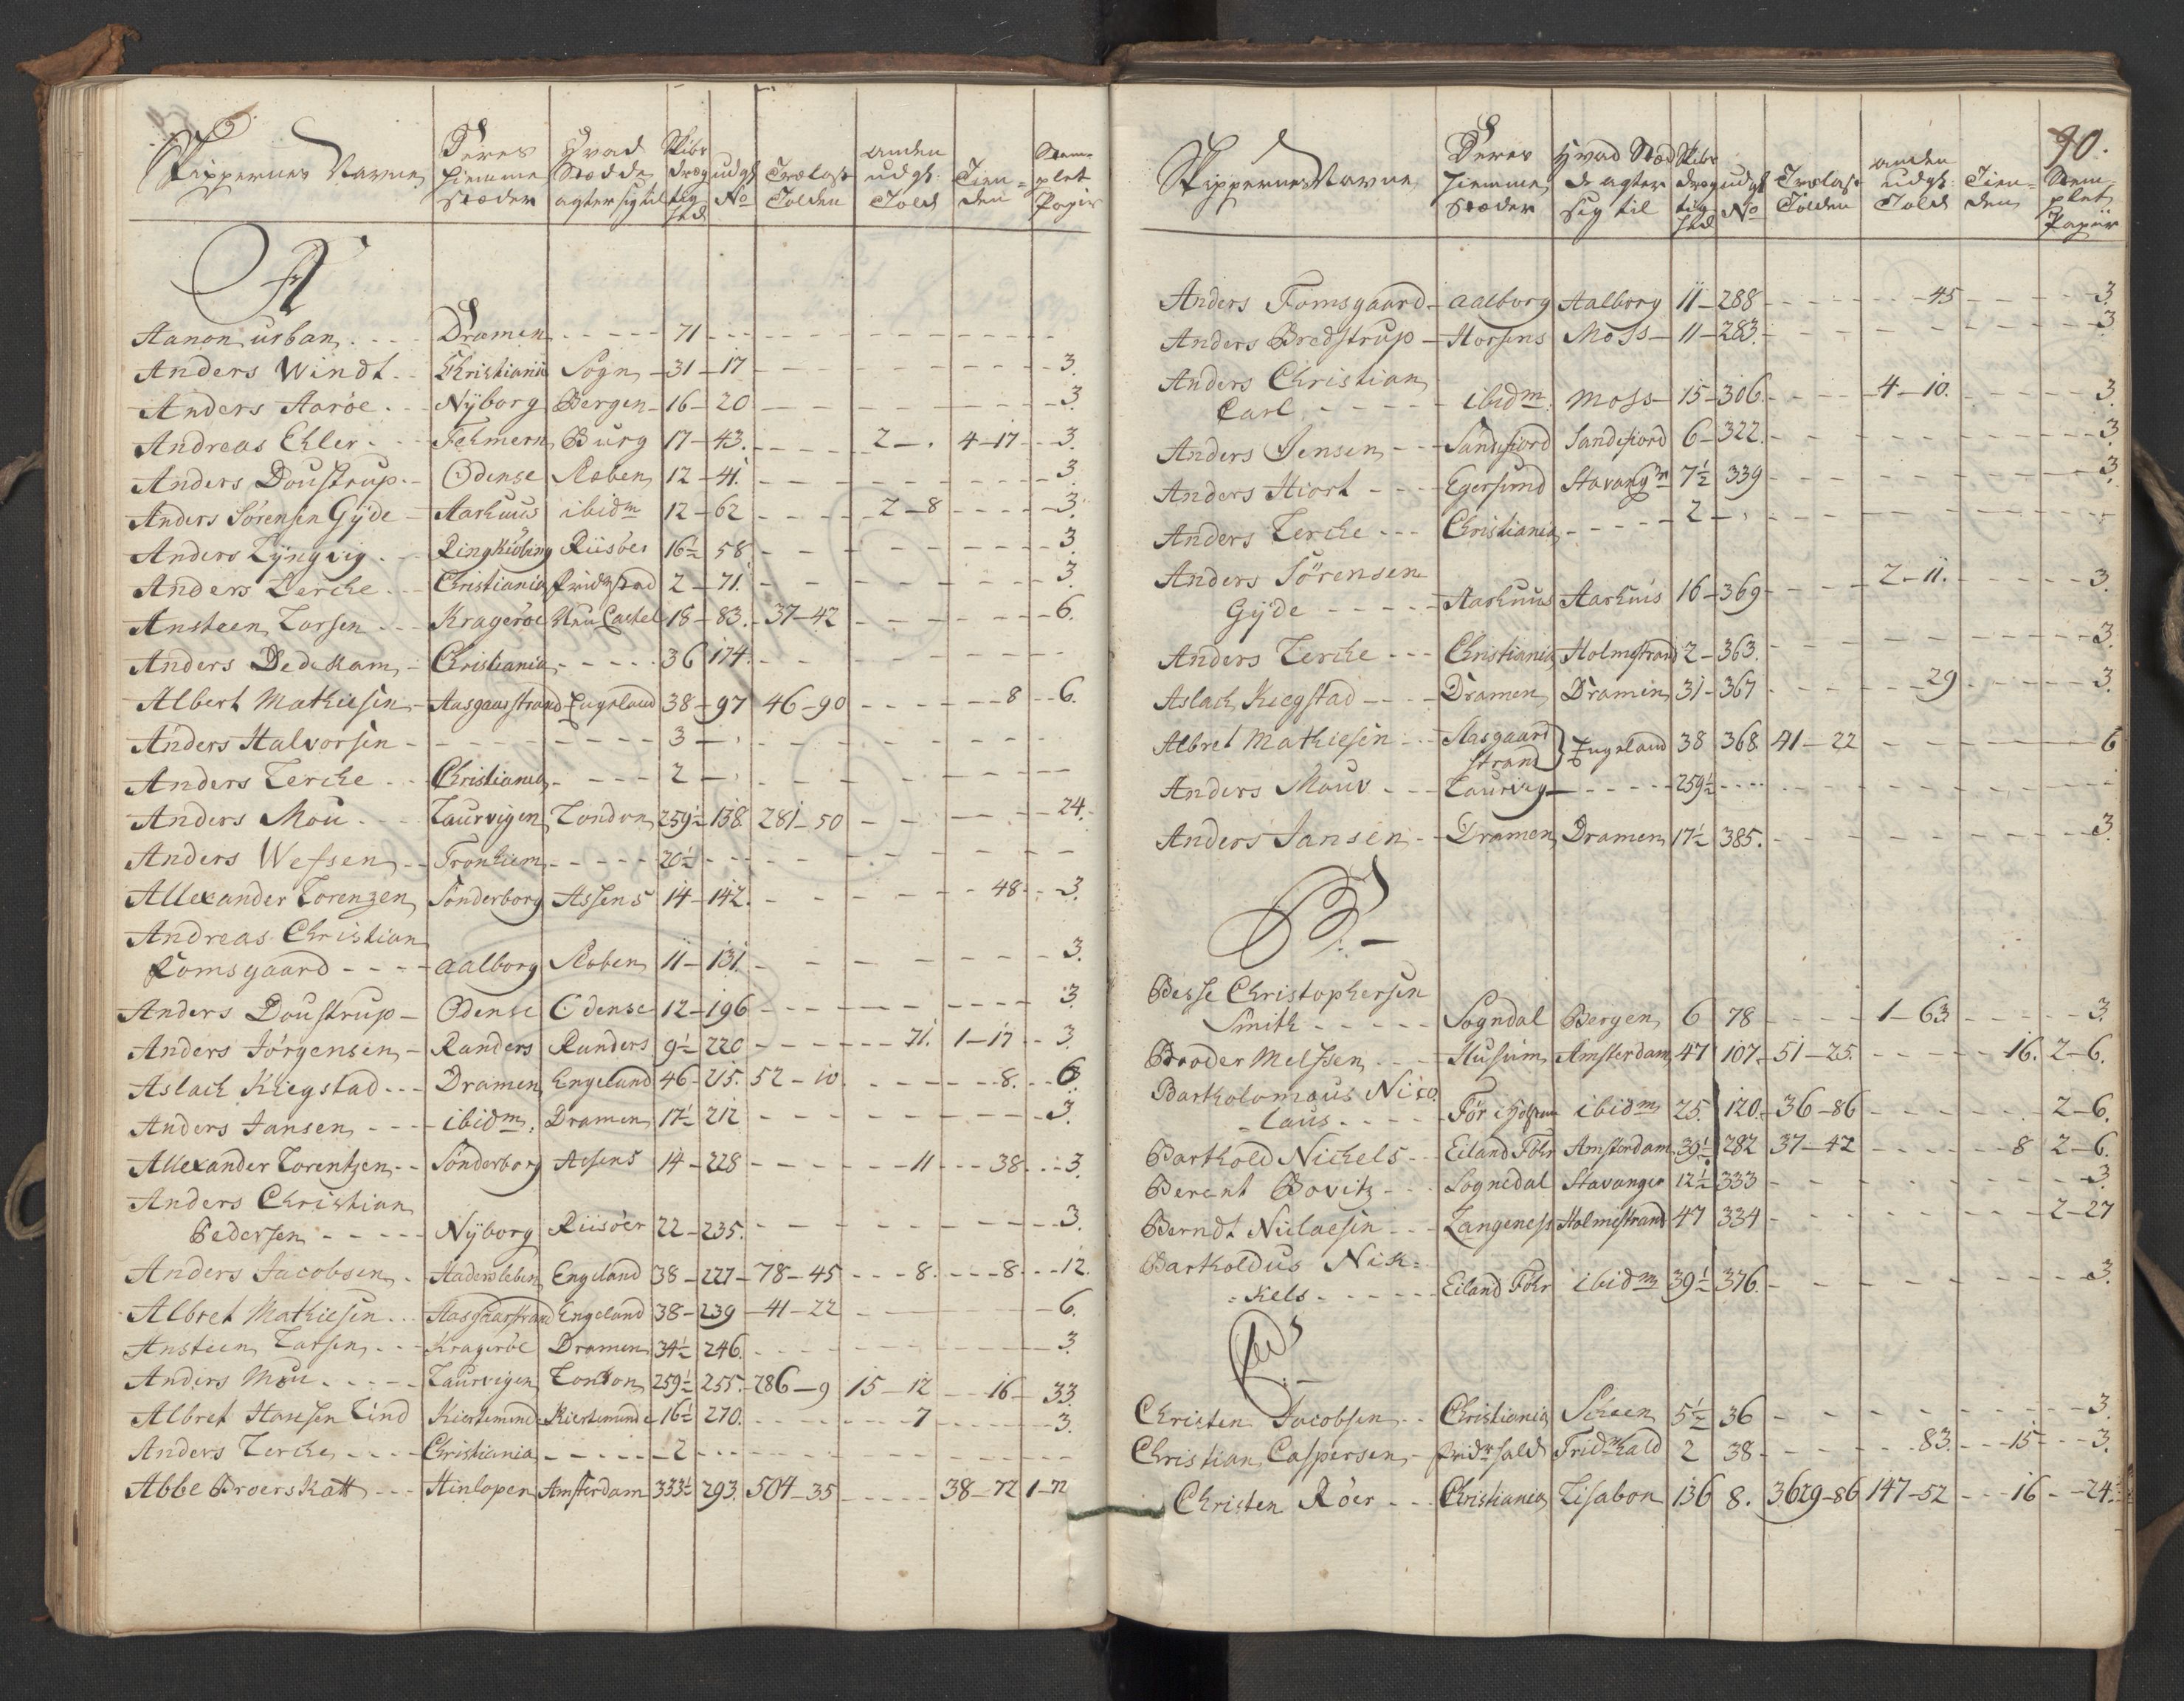 Skippernes Navne | Deres Hiemme Stæder | Hvad Stædde agter sig til | Skibs Drægtighed | udgk No | Trælast Tolden | anden udgk: Told | Tienden | Stemplet Papiir
A
Aanon urban . . Dramen - - - 71 - - -
Anders Windt . . Christiania Sogn - 31 - 17 - - - 3.
Anders Aaröe . - Nÿborg Bergen - 16 - 20 - - - 3.
Andreas Ehler . - Fehmern Burg 17 - 43. - - 2 - . 4 - 17 - - 3.
Anders Doustrup . - Odense Roben 12 - 41. - - - 3.
Anders Sörensen Gÿde - Aarhuus ibidm 12 - 62 - - 2 - 8 - - - 3.
Anders Lÿngvig . - Ringkiöbing Riisöer 16½ 58 - - - 3.
Anders Lerche . - Christiania Fridrstad 2 - 71. - - - 3.
Ansteen Larsen . . Krageröe New Castel 18 - 83. - 37 - 42 - - - 6.
Anders Dedekam - Christiania - - - 36 174. - - -
Albert Mathiesen - Aasgaardstrand Engeland 38 - 97 46 - 90 - - - 8 - - 6.
Anders Halvorsen - - - - 3 - . - - -
Anders Lerche . - Christiania - - - 2 - . - - -
Anders Mou . - Laurvigen London 259½ 138. 281 - 50 - - - 24.
Anders Wessen . . Tronhiem - - - 20½ - - -
Allexander Lorenzen Sönderborg Assens 14 - 142. - - - 48. - - 3.
Andreas Christian
Tomsgaard - - - - aalborg Roben 11 - 131. - - - 3.
Anders Doustrup - Odense Odense 12 - 196 - - - 3.
Anders Jörgensen - Randers Randers 9½ 220 - - - 71. 1 - 17 - - 3.
Aslach Kiegstad . . Dramen Engeland 46 - 215. 52 - 10 - - - 8. - - 6
Anders Jansen - - - ibidm. Dramen 17½ 212 - - - 3.
Allexander Lorentzen - - Sönderborg Assens 14 - 228 - - - 11 - - - 38. - - 3.
Anders Christian
Pedersen - - - - Nÿborg Riisöer 22 - 235. - - - 3.
Anders Jacobsen . Hadersleben Engeland 38 - 227 - 78 - 45 - - - 8. - - - 8. - - 12.
Albret Mathiesen . . Aasgaarstrand Engeland 38 - 239 - 41 - 22 - - - 6.
Ansteen Larsen . . Krageröe Dramen 34½ 246. - - - 3.
Anders Mou . . . . Laurvigen London 259½ 255. - 286 - 9 15 - 12 - - 16 - 33.
Albret Hansen Lind Kierteminde Kierteminde 16½ 270. - - - 7 - - - 3.
Anders Lerche - - - - Christiania - - - 2 - - -
Abbe Broers Katt - - - Hinlopen Amsterdam 333½ 293. 504 - 35 - - - 38 - 72 1 - 72
90.
Skippernes Navne | Deres Hiemme Stæder | Hvad Stæd de agter sig til | Skibs Drægtighed | udgk No | Trælast Tolden | anden udgk: Told | Tienden | Stemplet Papiir
Anders Tomsgaard - aalborg Aalborg 11 - 288 - - - 45 - - - 3.
Anders Bredstrup - Horsens Moss - 11 - 283. - - - 3
Anders Christian
Carl - - - - ibidm. Moss - 15 - 306. - - - 4 - 10. - - - 3.
Anders Jensen - - - Sandefiord Sandefiord 6 - 322. - - - 3.
Anders Hiort - - - Egersund Stavanger 7½ 339 - - - 3.
Anders Lerche - - - Christiania - - - 2 - . - - -
Anders Sörensen
Gÿde - - - - Aarhuus Aarhuus 16 - 369 - - - 2 - 11. - - - 3.
Anders Lerche - - - Christiania Holmstrand 2 - 363. - - - 3.
Aslach Kiegstad - - - Dramen Dramen 31 - 367 - - - 29 - - - 3.
Albret Mathiesen - - Aasgaard
strand } Engeland 38 368. 41 - 22 - - - 6
Anders Mouv - - - Laurvig - - - 259½ - - -
Anders Jansen - - Dramen Dramen 17½ 385. - - - 3.
B. -
Besse Christophersen
Smith - - - - Sogndal Bergen 6 78 - - - 1 - 63 - - - 3.
Broder Melssen . . Husum Amsterdam 47 107. - 51 - 25. - - - 16. 2 - 6.
Bartholomaus Nico
= laus - - - - För i Holsteen ibidm 25. 120. - 36 - 86 - - - 2 - 6.
Barthold Nickels - - Eiland Föhr Amsterdam 39½ 282 37 - 42 - - - 8 2 - 6.
Berent Bovitz - - Sognedal Stavanger 12½ 333 - - - 3.
Berndt Niclaesen - - - Langeness Holmestrand 47 334 - - - 2 - 27
Bartholdus Nick =
= kels - - - - Eiland Föhr ibidm 39½ 376. - - - 3.
C. -
Christen Jacobsen - - Christiania Scheen 5½ 36 - - - 3.
Christian Caspersen - Fridrhald Fridrhald 2 38 - - - 83. - - - 15 - - - 3.
Christen Röer - - - Christiania Lisabon 136 8. 3629 - 86 147 - 52 - - - 16 - - 24.